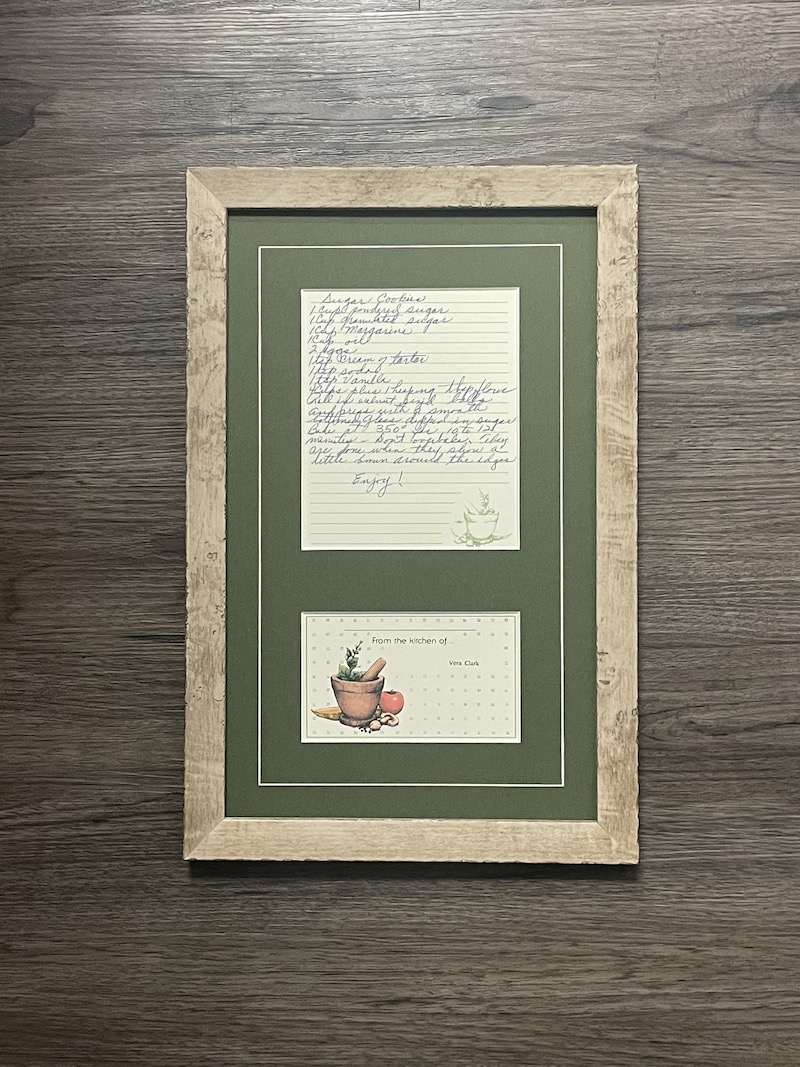 Sugar Cookies
1 cup powdered sugar
1 Cup granulated sugar
1 Cup Margarine
1 Cup oil
2 eggs
1 tsp Cream of tartar
1 tsp soda
1 tsp Vanilla
4 Cups plus 1 heeping tbsp flour
Roll in walnut sized balls
and press with a smooth
bottomed glass dipped in sugar
Bake at 350° for 10 to 12
minutes - Don't overbake. They
are done when they show a
little brown around the edges
Enjoy!
From the kitchen of...
Vera Clark